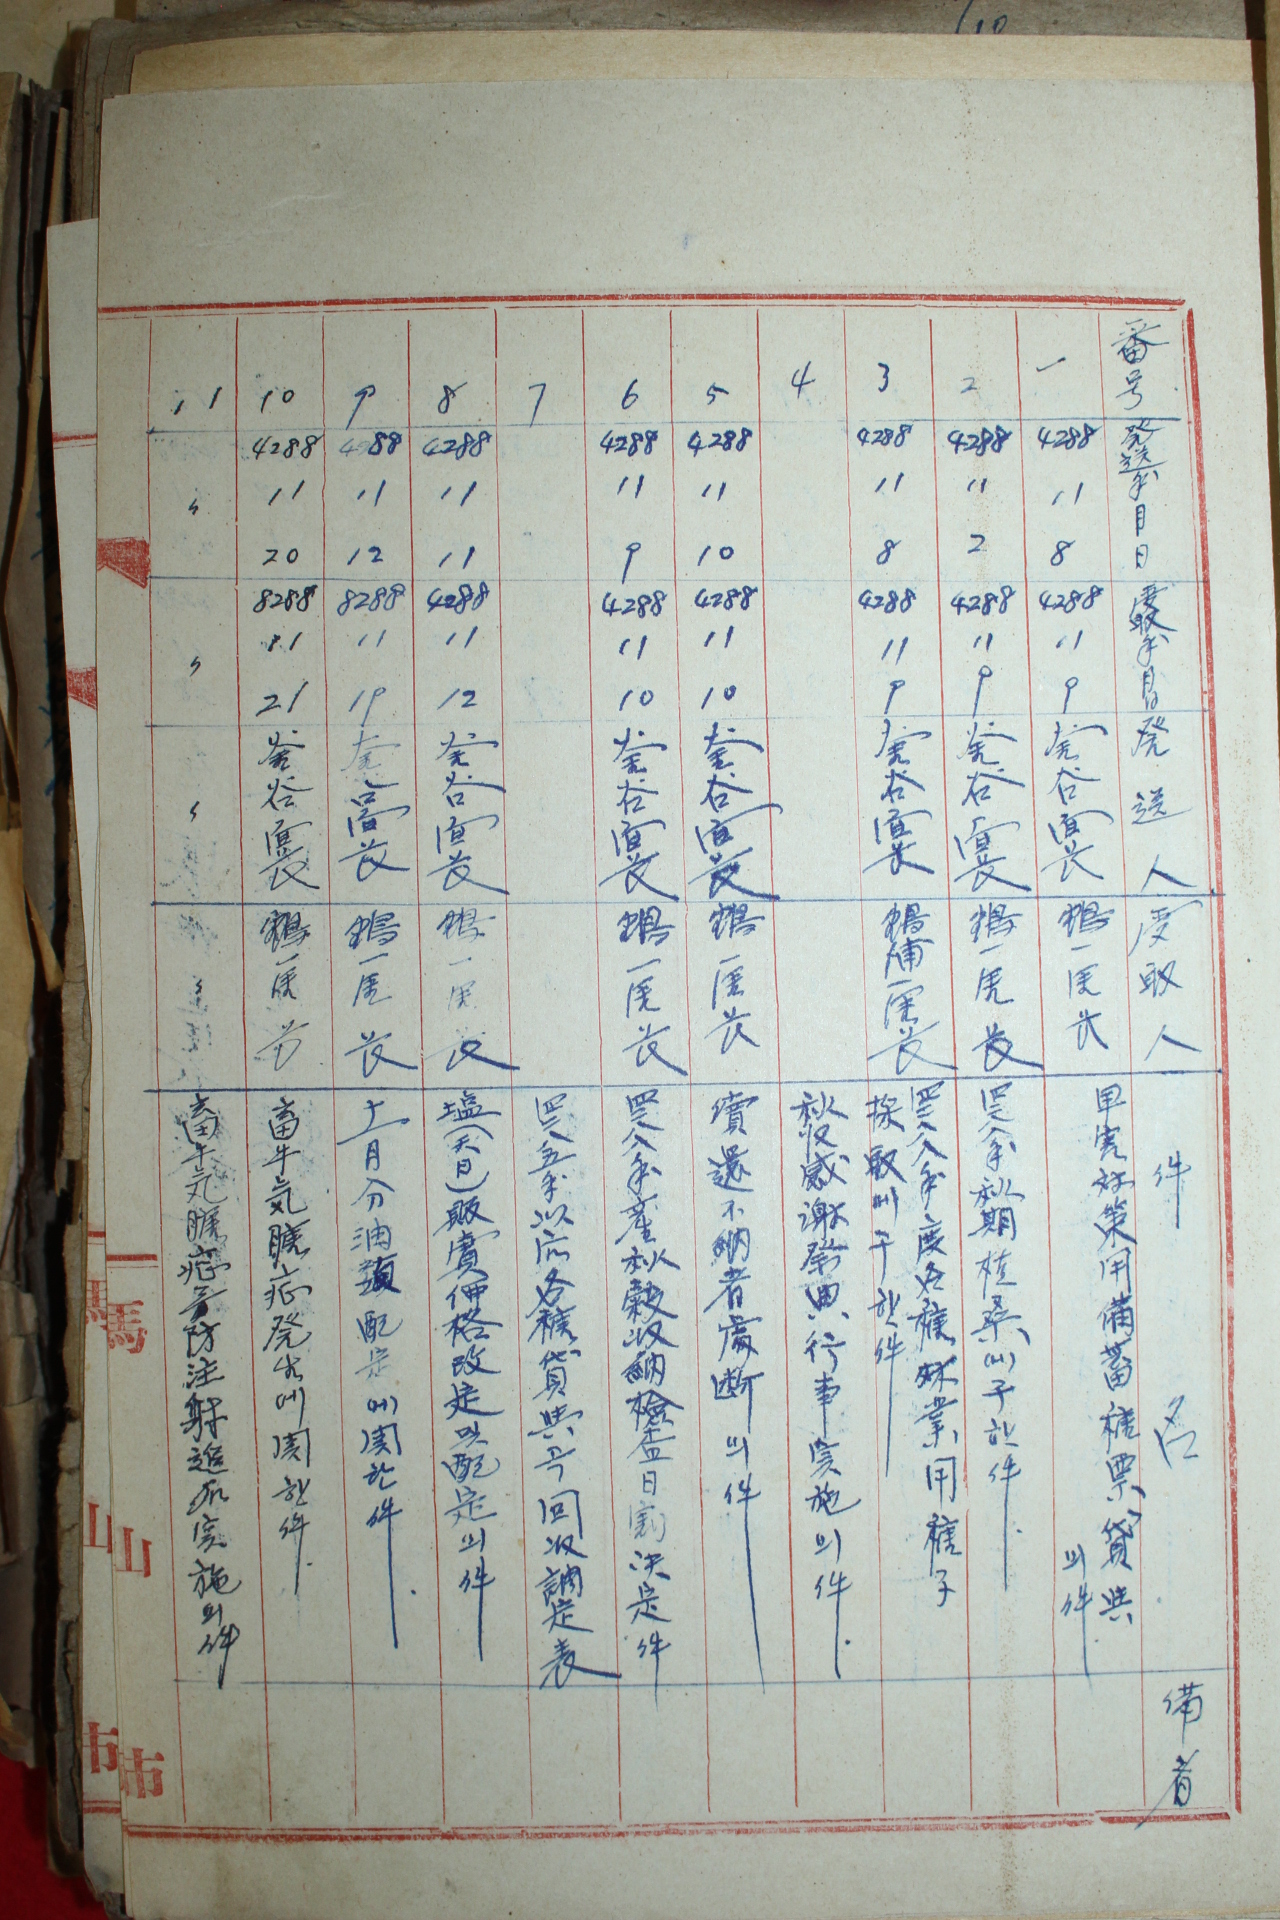 番号 発送年月日 受取年月日 発送人 受取人 件名 備考
一 4288 11 8 4288 11 9 釜谷面長 鶴一里長 旱害対策用備蓄 種票貸与
의件
2 4288 11 2 4288 11 9 釜谷面長 鶴一里長 四二八八年秋期植桑에 件
3 4288 11 8 4288 11 9 釜谷面長 一里長 四二八八年度各種 業用種子
採取 件
4 秋収感謝祭典行事実施의件
5 4288 11 10 4288 11 10 釜谷面長 鶴一里長 償還不納者處断의件
6 4288 11 9 4288 11 10 釜谷面長 鶴一里長 四二八八年産秋穀収納檢査日割決定件
7 以前各種貸与 回収調定表
8 4288 11 11 4288 11 12 釜谷面長 鶴一里長 塩(天日)販賣価格改定 配定의件
9 88 11 12 8288 11 19 釜谷面長 鶴一里長 十一月分油類配定에関한件
10 4288 11 20 8288 11 21 釜谷面長 鶴一里長 畜牛気腫疽発生에関한件
11 〃 〃 〃 畜牛気腫疽予防注射追加実施의件
馬
山
市
馬
山
市